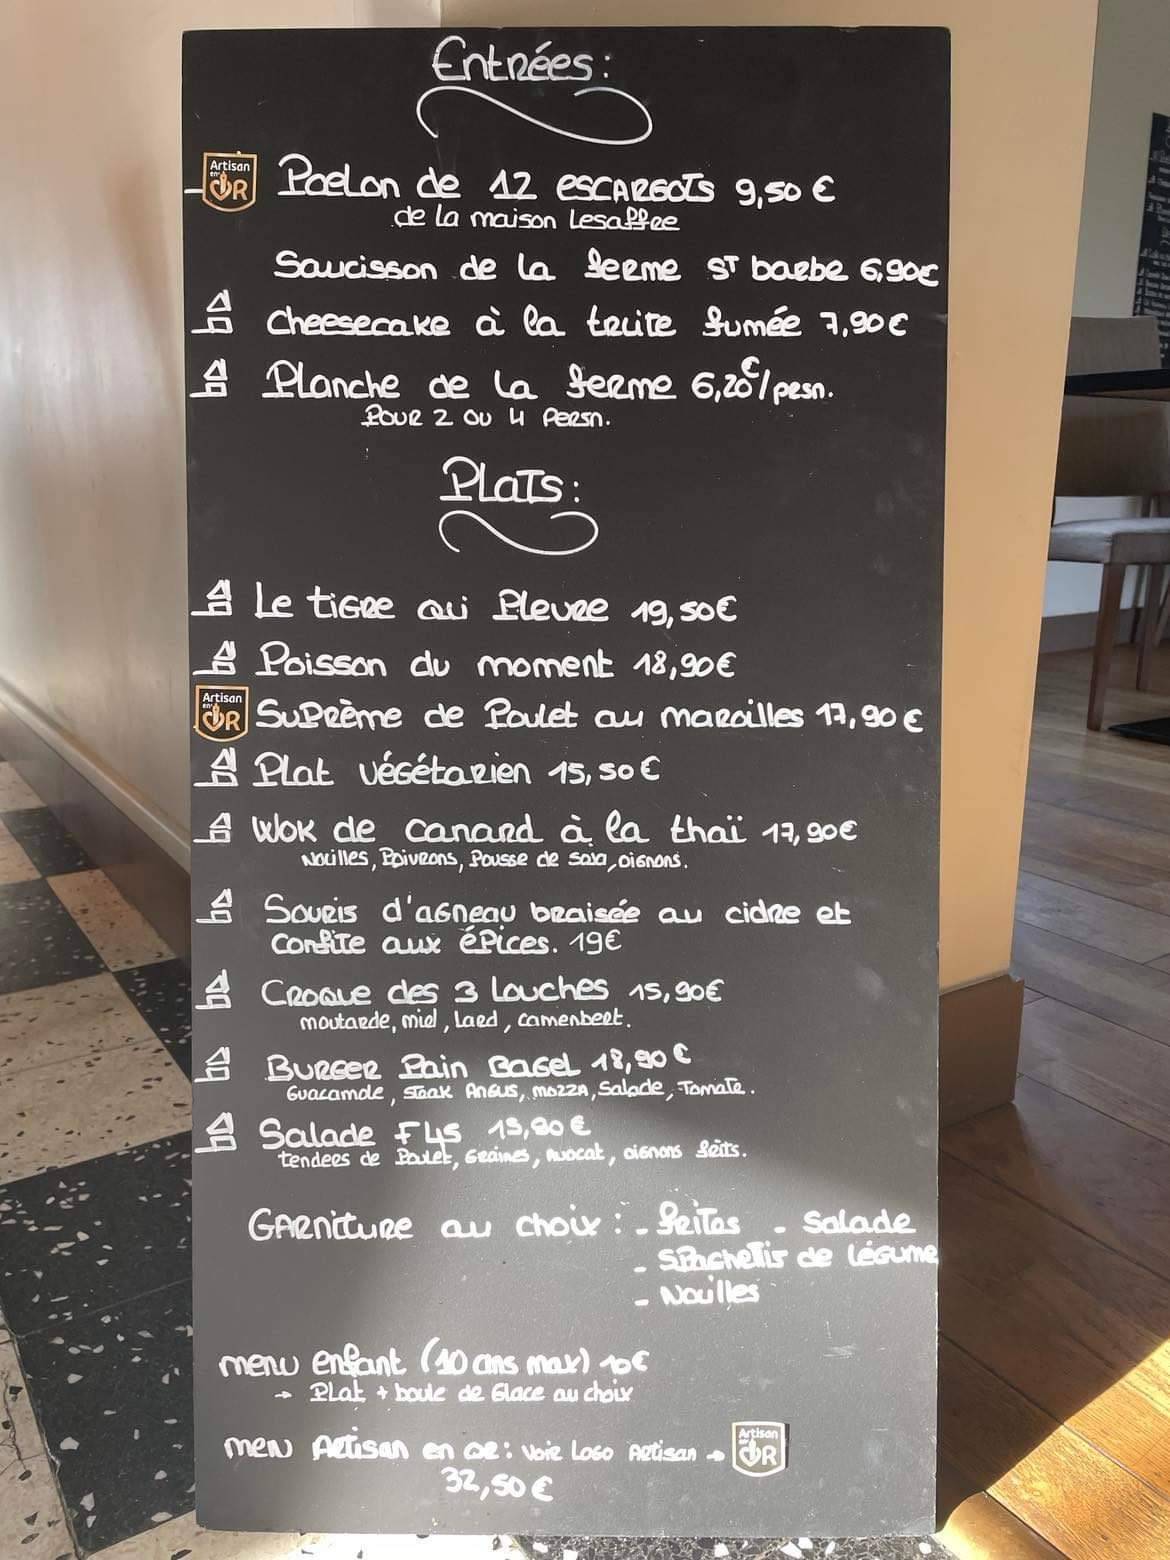 Entrées:
Artisan en OR
Poelon de 12 escargots 9,50 €
de la maison Lesaffre
Saucisson de la ferme ST barbe 6,90€
Cheesecake à la truite fumée 7,90€
Planche de la ferme 6,20€/persn.
Pour 2 ou 4 Persn.
Plats:
Le tigre qui Pleure 19,50€
Poisson du moment 18,90€
Artisan en OR
Suprême de Poulet au maroilles 17,90€
Plat végétarien 15,50€
Wok de canard à la thaï 17,90€
Nouilles, Poivrons, Pousse de soja, oignons.
Souris d'agneau braisée au cidre et
confite aux épices. 19€
Croque des 3 Louches 15,90€
moutarde, miel, Lard, camenbert.
Burger Pain Bagel 18,90€
Guacamole, steak Angus, mozza, Salade, Tomate.
Salade F45 15,90€
tendres de Poulet, Graines, Avocat, oignons frits.
Garniture au choix: - frites - Salade
- Spaghettis de légume
- Nouilles
menu enfant (10 ans max) 10€
→ Plat + boule de Glace au choix
menu Artisan en or: Voir Logo Artisan → Artisan en OR
32,50€